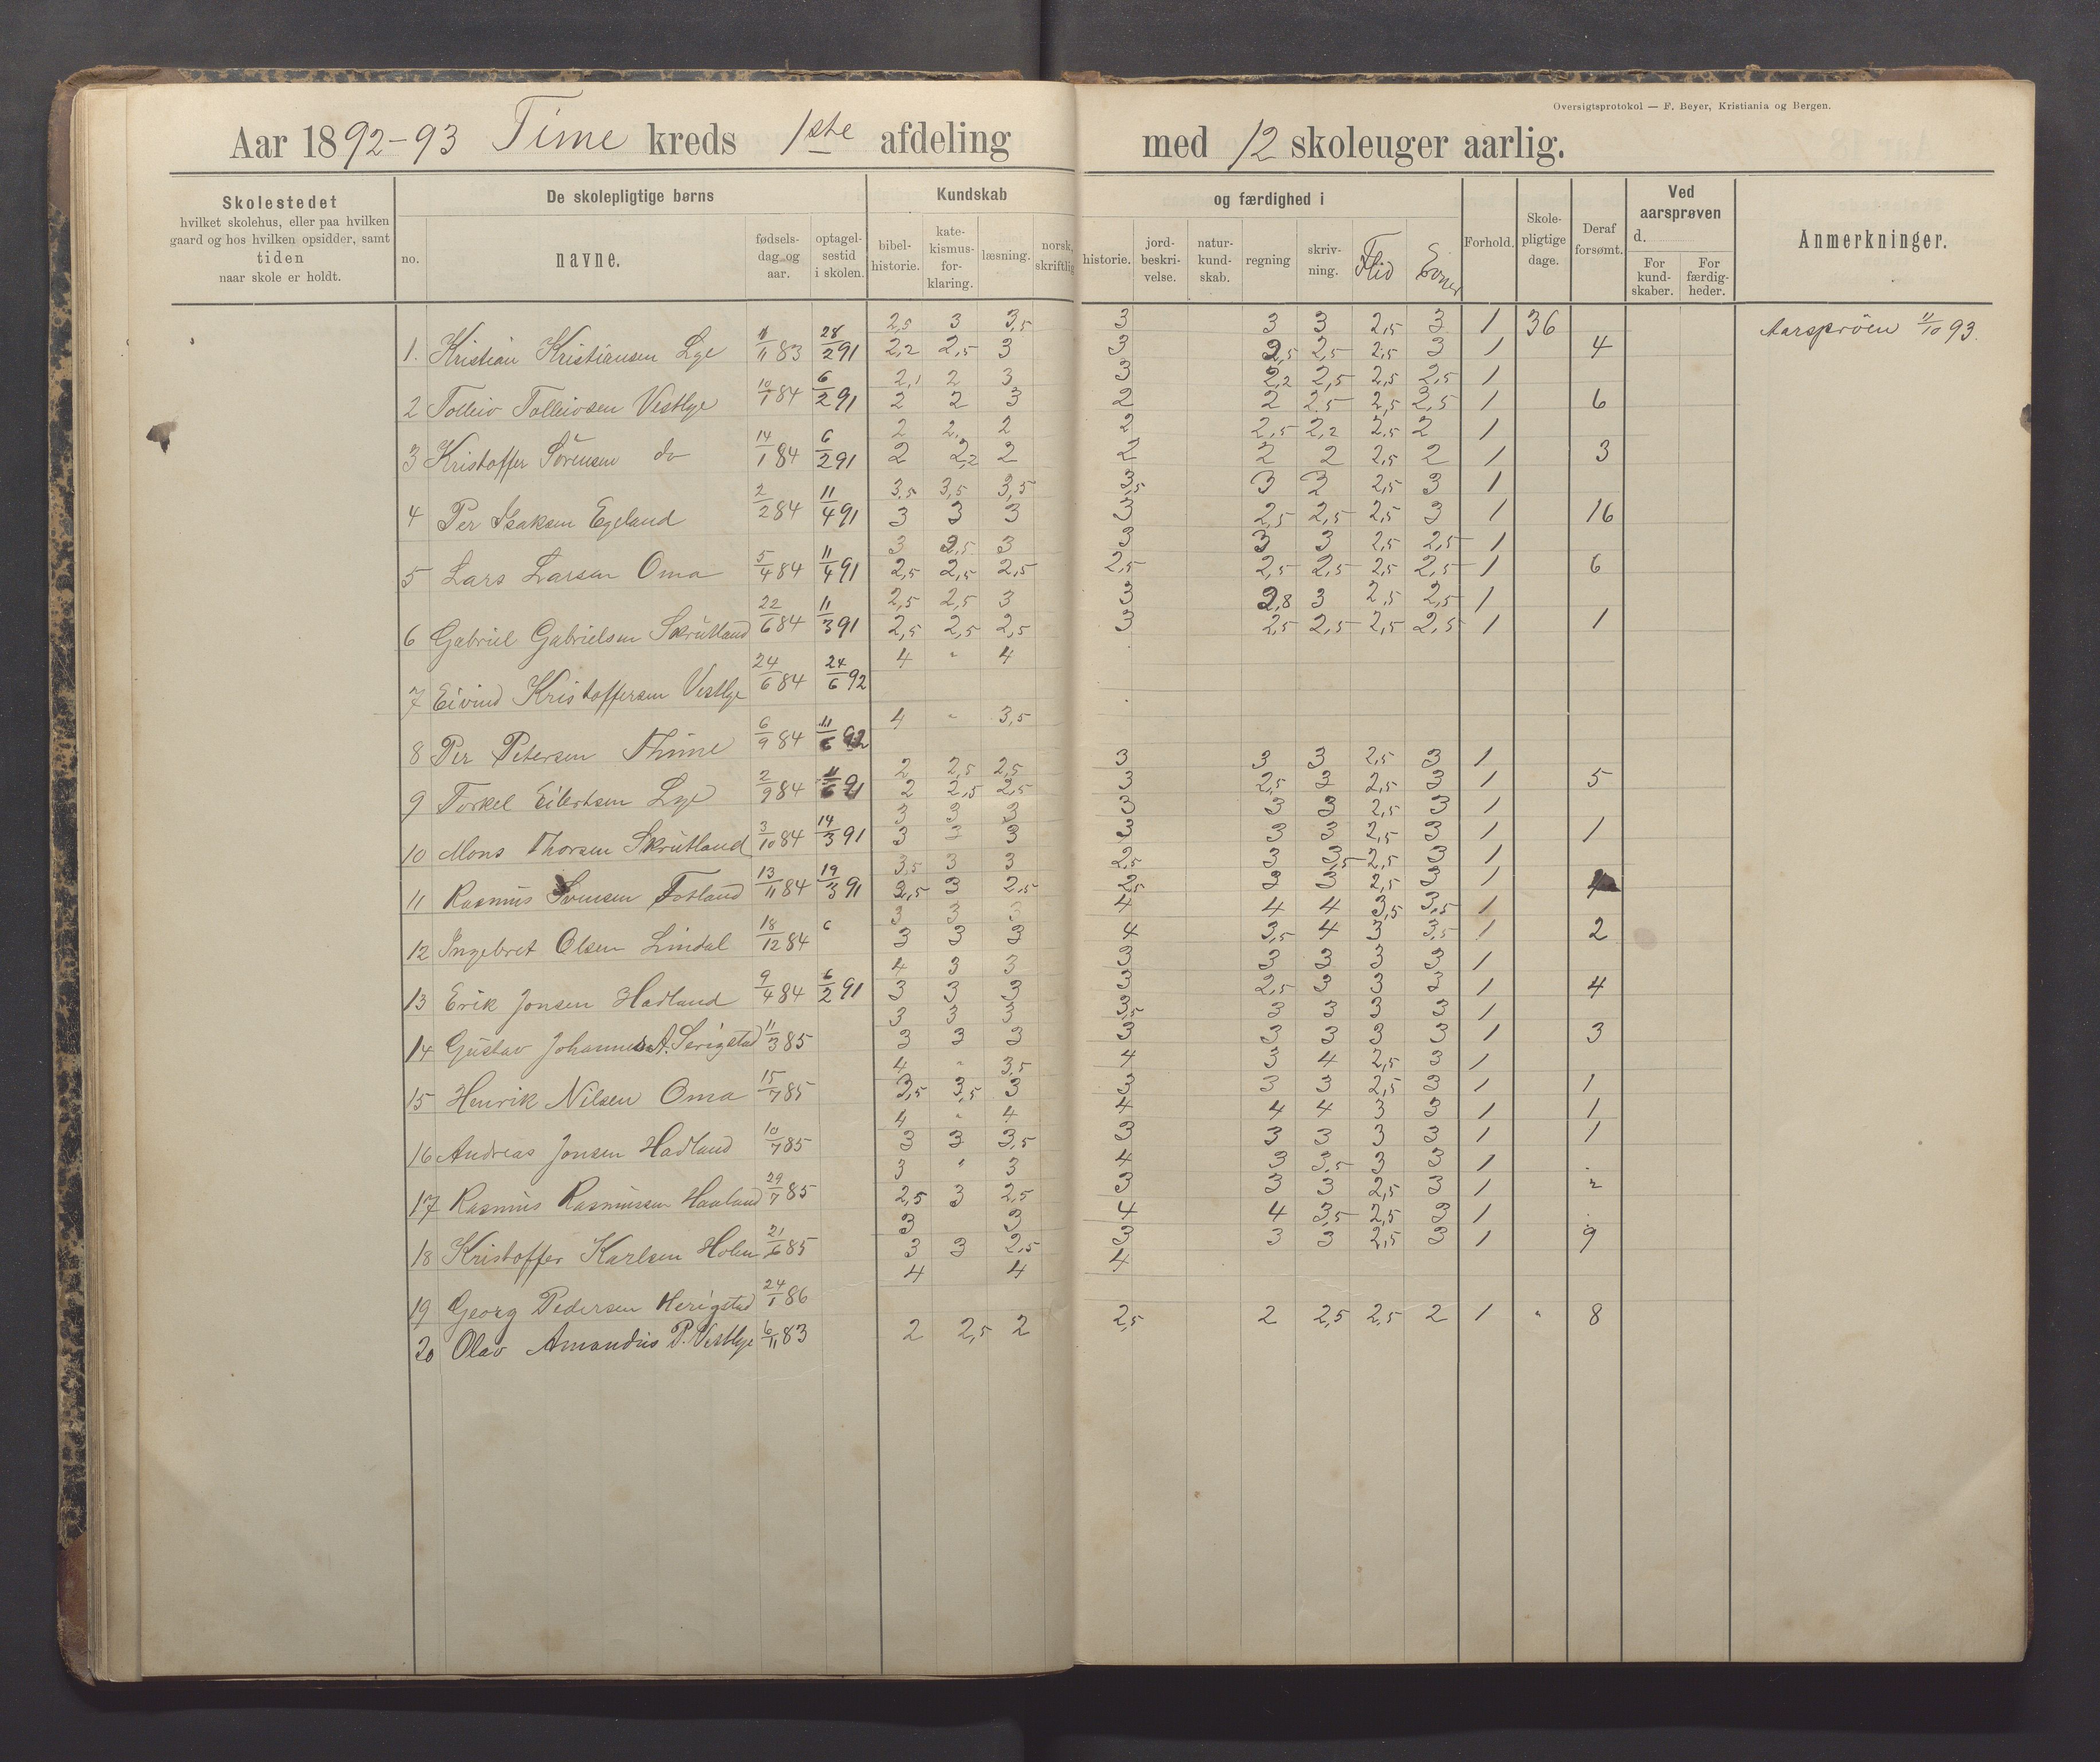 Oversigtsprotokol — F. Beyer, Kristiania og Bergen.
Aar 1892-93 Time kreds 1ste afdeling med 12 skoleuger aarlig.
Skolestedet
hvilket skolehus, eller paa hvilken
gaard og hos hvilken opsidder, samt
tiden
naar skole er holdt.
De skolepligtige børns
no.
navne.
fødsels-
dag og
aar.
optagel-
sestid
i skolen.
Kundskab og færdighed i
bibel-
historie.
kate-
kismus-
for-
klaring.
læsning.
norsk,
skriftlig
historie.
jord-
beskri-
velse.
natur-
kund-
skab.
regning
skriv-
ning.
Flid
Evner
Forhold.
Skole-
pligtige
dage.
Deraf
forsømt.
Ved
aarsprøven
d.
For
kund-
skaber.
For
færdig-
heder.
Anmerkninger.
2,5 3 3,5 3 3 3 2,5 3 1 36 Aarspröen 11/10 93.
1. Kristian Kristiansen Lye 11/11 83 28/2 91 2,2 2,5 3 3 2,5 2,5 2,5 3 1 4
2,1 2 3 3 2,2 2,5 2,5 2,5 1
2 Tolleiv Tolleivsen Vestlye 10/1 84 6/2 91 2 2 3 2 2 2,5 2,5 2,5 1 6
2 2, 2 2 2,5 2,2 2,5 2 1
3 Kristoffer Sörensen do 14/1 84 6/2 91 2 2,2 2 2 2 2 2,5 2 1 3
3,5 3,5 3,5 3,5 3 3 2,5 3 1
4 Per Isaksen Egeland 2/2 84 11/4 91 3 3 3 3 2,5 2,5 2,5 3 1 16
3 2,5 3 3 3 3 2,5 2,5 1
5 Lars Larsen Oma 5/4 84 11/4 91 2,5 2,5 2,5 2,5 2,5 2,5 2,5 2,5 1 6
2,5 2,5 3 3 2,8 3 2,5 2,5 1
6 Gabriel Gabrielsen Skrutland 22/6 84 11/3 91 2,5 2,5 2,5 3 2,5 2,5 2,5 2,5 1 1
4 " 4
7 Eivind Kristoffersen Vestlye 24/6 84 24/6 92
4 " 3,5
8 Per Petersen Thime 6/9 84 11/6 92
2 2,5 2,5 3 3 3 2,5 3 1
9 Torkel Eilertsen Lye 2/9 84 11/6 91 2 2,5 2,5 3 2,5 3 2,5 3 1 5
3 3 3 3 3 3 2,5 3 1
10 Mons Thorsen Skrutland 3/10 84 14/3 91 3 3 3 3 3 3 2,5 3 1 1
3,5 3 3 2,5 3 3,5 2,5 3 1
11 Rasmus Svensen Fotland 13/11 84 19/3 91 2,5 3 2,5 2,5 3 3 2,5 3 1
3 3 3 4 4 4 3,5 3,5 1
12 Ingebret Olsen Lindal 18/12 84 6 3 3 3 4 3,5 4 3 3,5 1 2
4 3 3 3 3 3 3 3 1
13 Erik Jonsen Hadland 9/4 84 6/2 91 3 3 3 3 2,5 3 3 3 1 4
3 3 3 3,5 3 3 3 3 1
14 Gustav Johannes A. Serigstad 11/3 85 3 3 3 3 3 3 3 3 1 3
4 " 3,5 4 3 4 2,5 3 1
15 Henrik Nilsen Oma 15/7 85 3,5 3,5 3 3 3 3 2,5 3 1 1
4 " 4 4 4 4 3 3 1 1
16 Andreas Jonsen Hadland 10/7 85 3 3 3,5 3 3 3 3 3 1 1
3 " 3 4 3 3,5 3 3 1 .
17 Rasmus Rasmussen Haaland 29/7 85 2,5 3 2,5 3 3 3 2,5 3 1 2
3 3 4 4 3,5 2,5 3 1 .
18 Kristoffer Karlsen Holen 21/6 85 3 3 2,5 3 3 3 2,5 3 1 9
4 4 4
19 Georg Pedersen Herigstad 24/1 86
20 Olav Amandus P. Vestlye 6/11 83 2 2,5 2 2,5 2 2,5 2,5 2 1 " 8